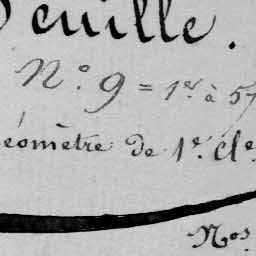 euille.
N.° 9 = 1.er à 57
éomètre de 1.e Cle
Nos